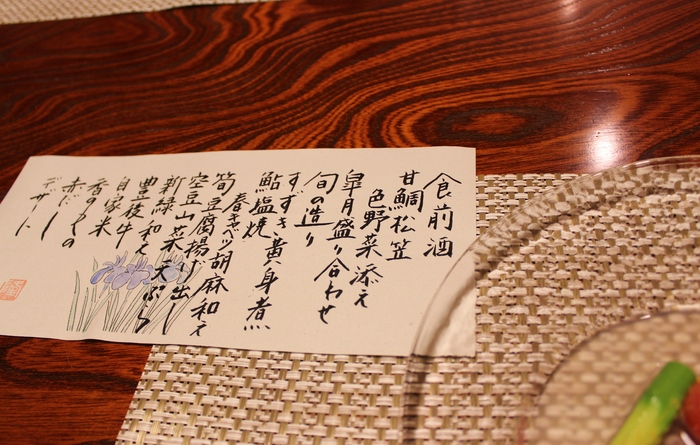 食前酒
甘鯛松笠
色野菜添え
皐月盛り合わせ
旬の造り
すずき黄身煮
鮎塩焼
春キャベツ胡麻和え
筍豆腐揚げ出し
空豆山菜天ぷら
新緑和え
豊後牛
自家米
香のもの
赤だし
デザート